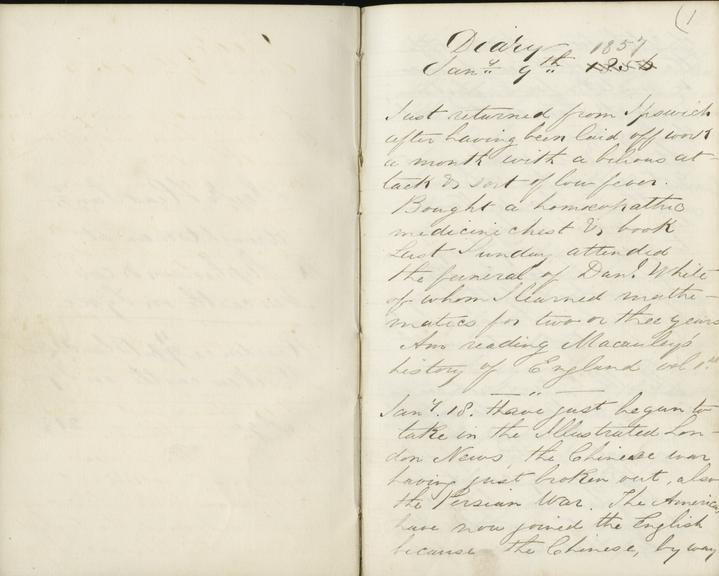 (1
Diary 1857
Jany 9th 1856
Just returned from Ipswich
after having been laid off work
a month with a bilious at-
tack & sort of low fever.
Bought a homœopathic
medicine chest & book
Last Sunday attended
the funeral of Danl White
of whom I learned mathe-
matics for two or three years
Am reading Macauley's
history of England vol 1st
Jany. 18. Have just begun to
take in the Illustrated Lon-
don News, the Chinese war
having just broken out, also
the Persian War. The America
have now joined the English
because the Chinese, by way